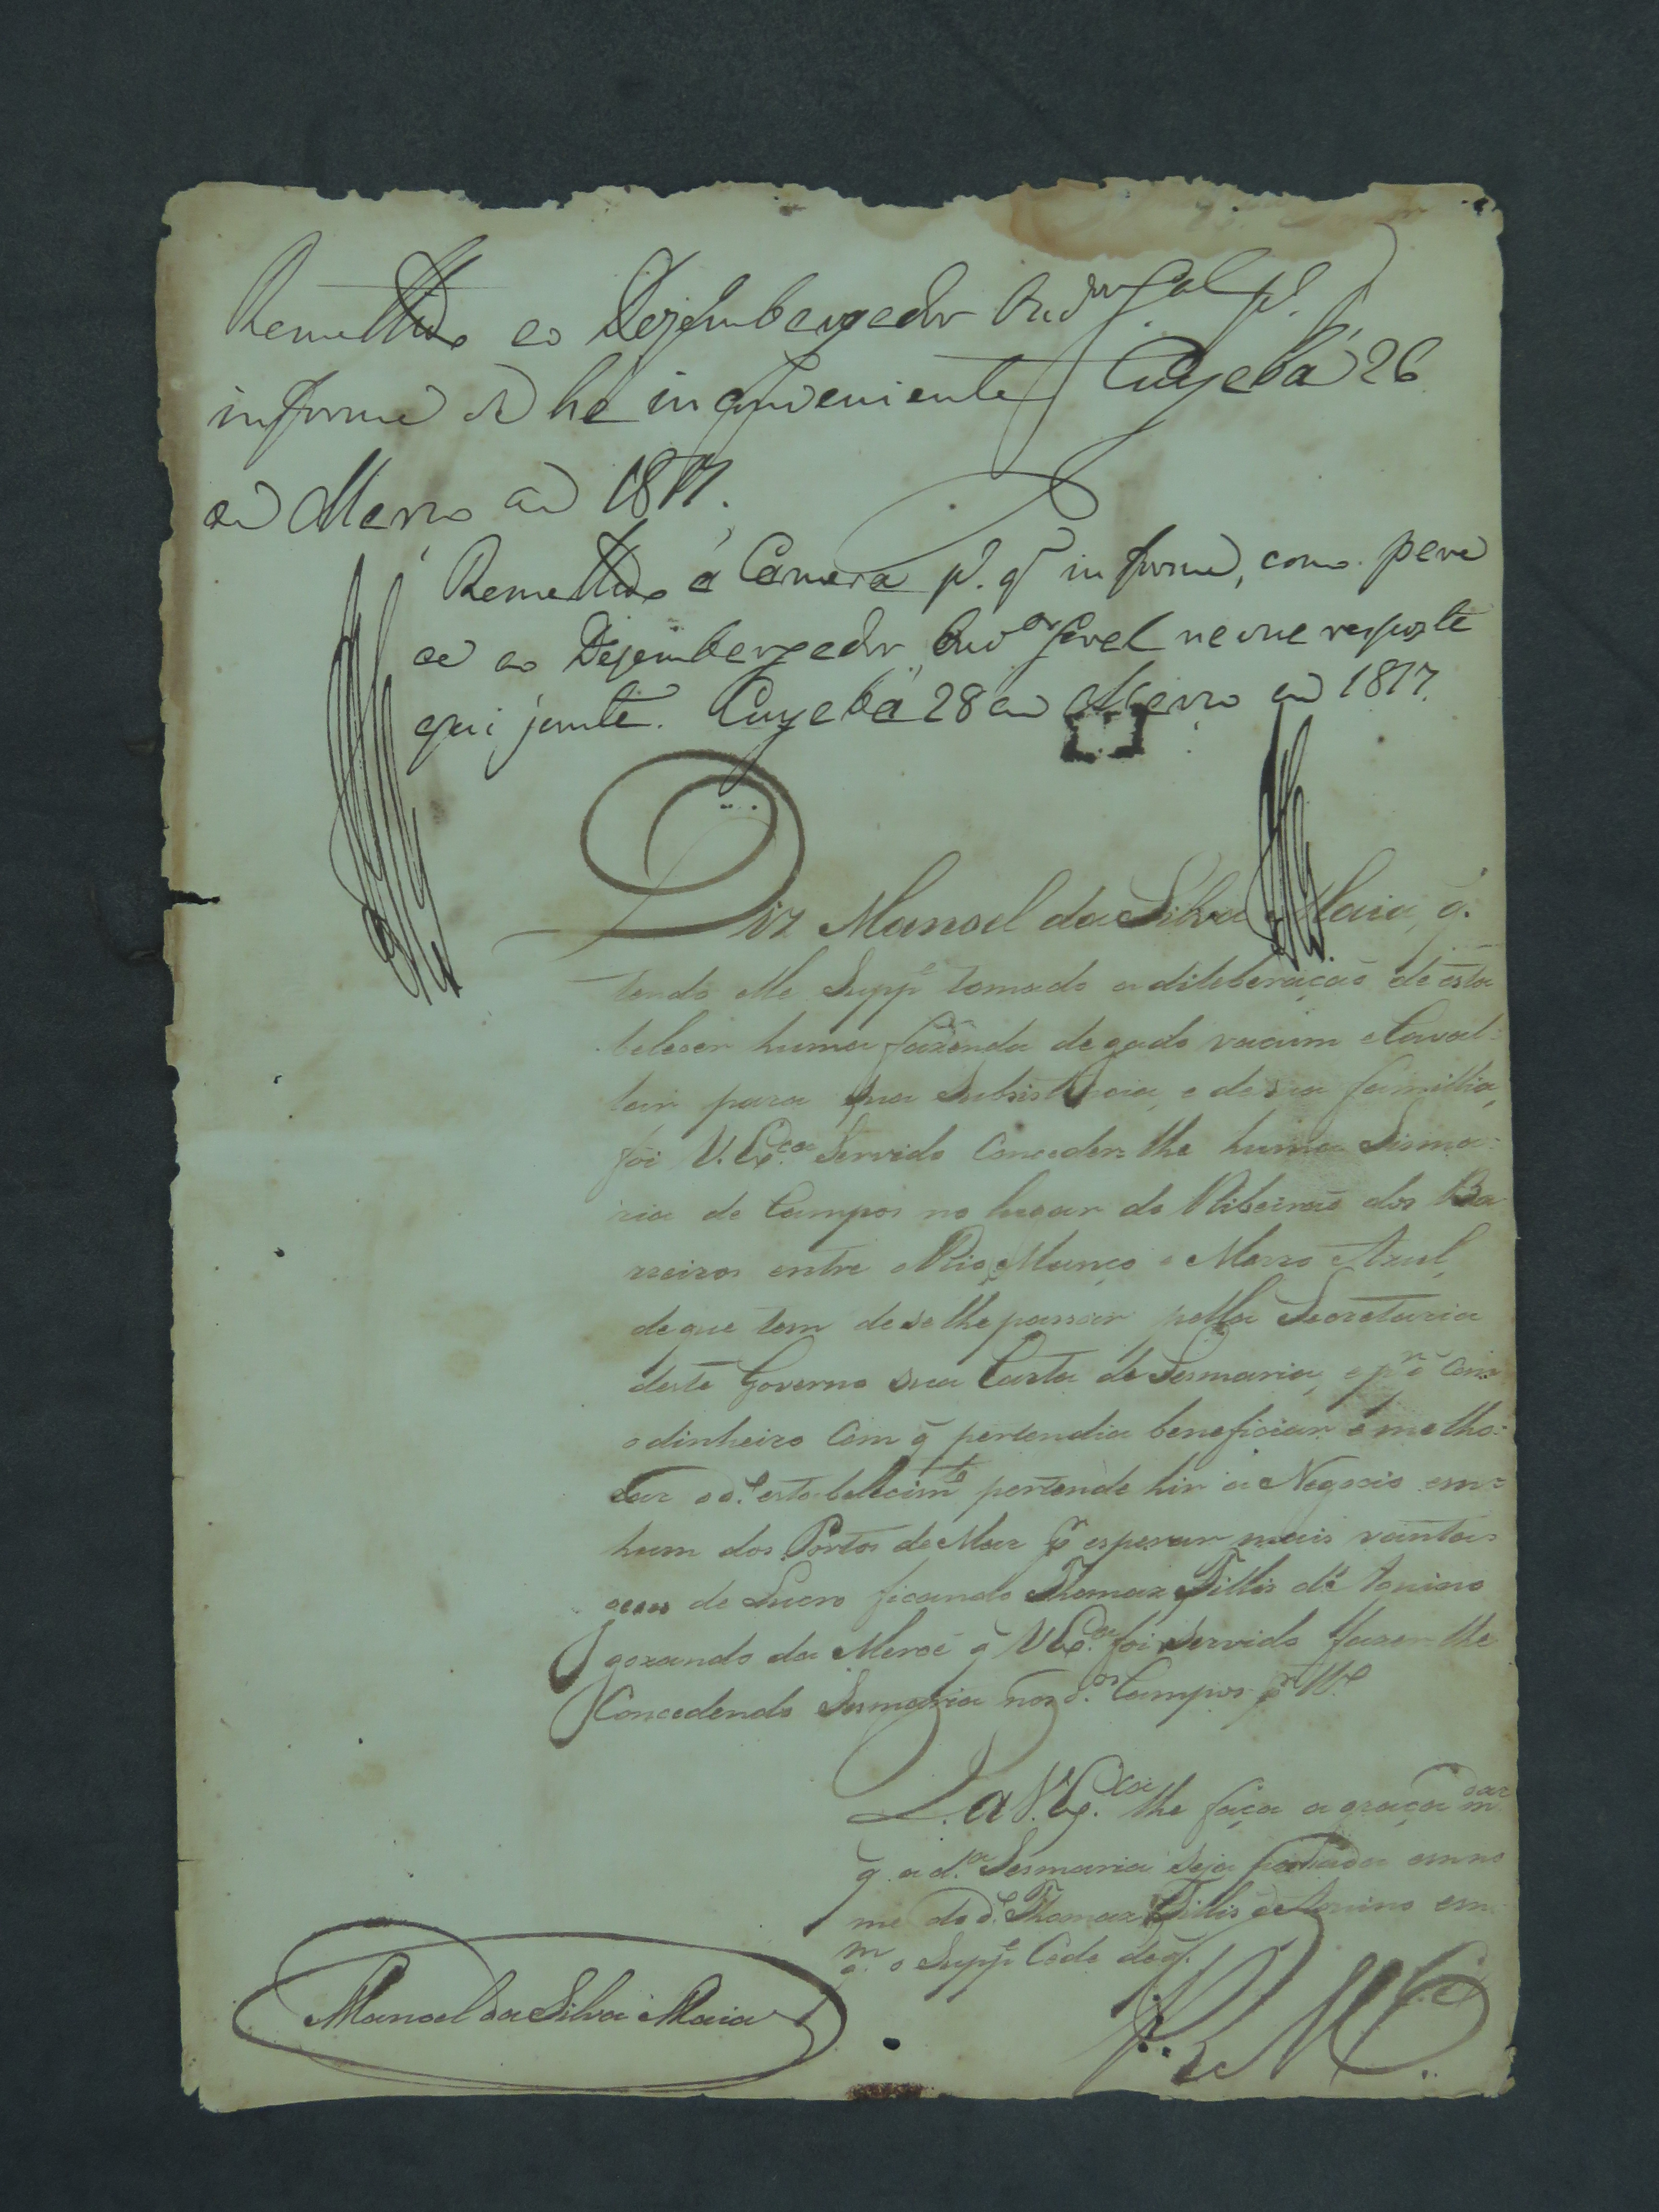 Remettido ao Dezembargador Ouv.or Gal p.a
informe se há inconveniente Cuyabá 26
de Março de 1817.
Remettido á Camara p.a q̃ informe, como pare
ce ao Dezembargador Ouv.or Geral na sua resposta
aqui junta. Cuyabá 28 de Março de 1817.
Diz Manoel da Silva Maia, q̃.
tendo elle Supp.e tomado a diliberação de esta
beleser huma fazenda de gado vacum e Caval-
lar para sua Subsistencia, e de sua familia,
foi V. Ex.cia Servido Conceder-lhe huma Sisma-
ria de Campos no lugar do Ribeirão dos Ba
rreiros entre o Rio Manço e Morro Azul,
de que tem de se lhe passar pella Secretaria
deste Governo sua Carta de Sesmaria, e p.r q̃ Com
o dinheiro Com q̃ pertendia beneficiar e melho-
rar o d.o estabellecim.to pertende hir á Negocio em-
hum dos Portos de Mar p.r esperar mais vanta-
gens de Lucro ficando Thomaz Fillis de
gozando da Mercê q̃ V Ex.cia foi Servido fazer-lhe
Concedendo Sesmaria nos d.os Campos p.r
P. a V. Ex.cia lhe faça a graça m.dar
q̃ a d.a Sesmaria seja passada em no
me do d.o Thomaz Fillis de em
q.m o Supp.e Cede de q̃.
E. R. M.ce
Manoel da Silva Maia